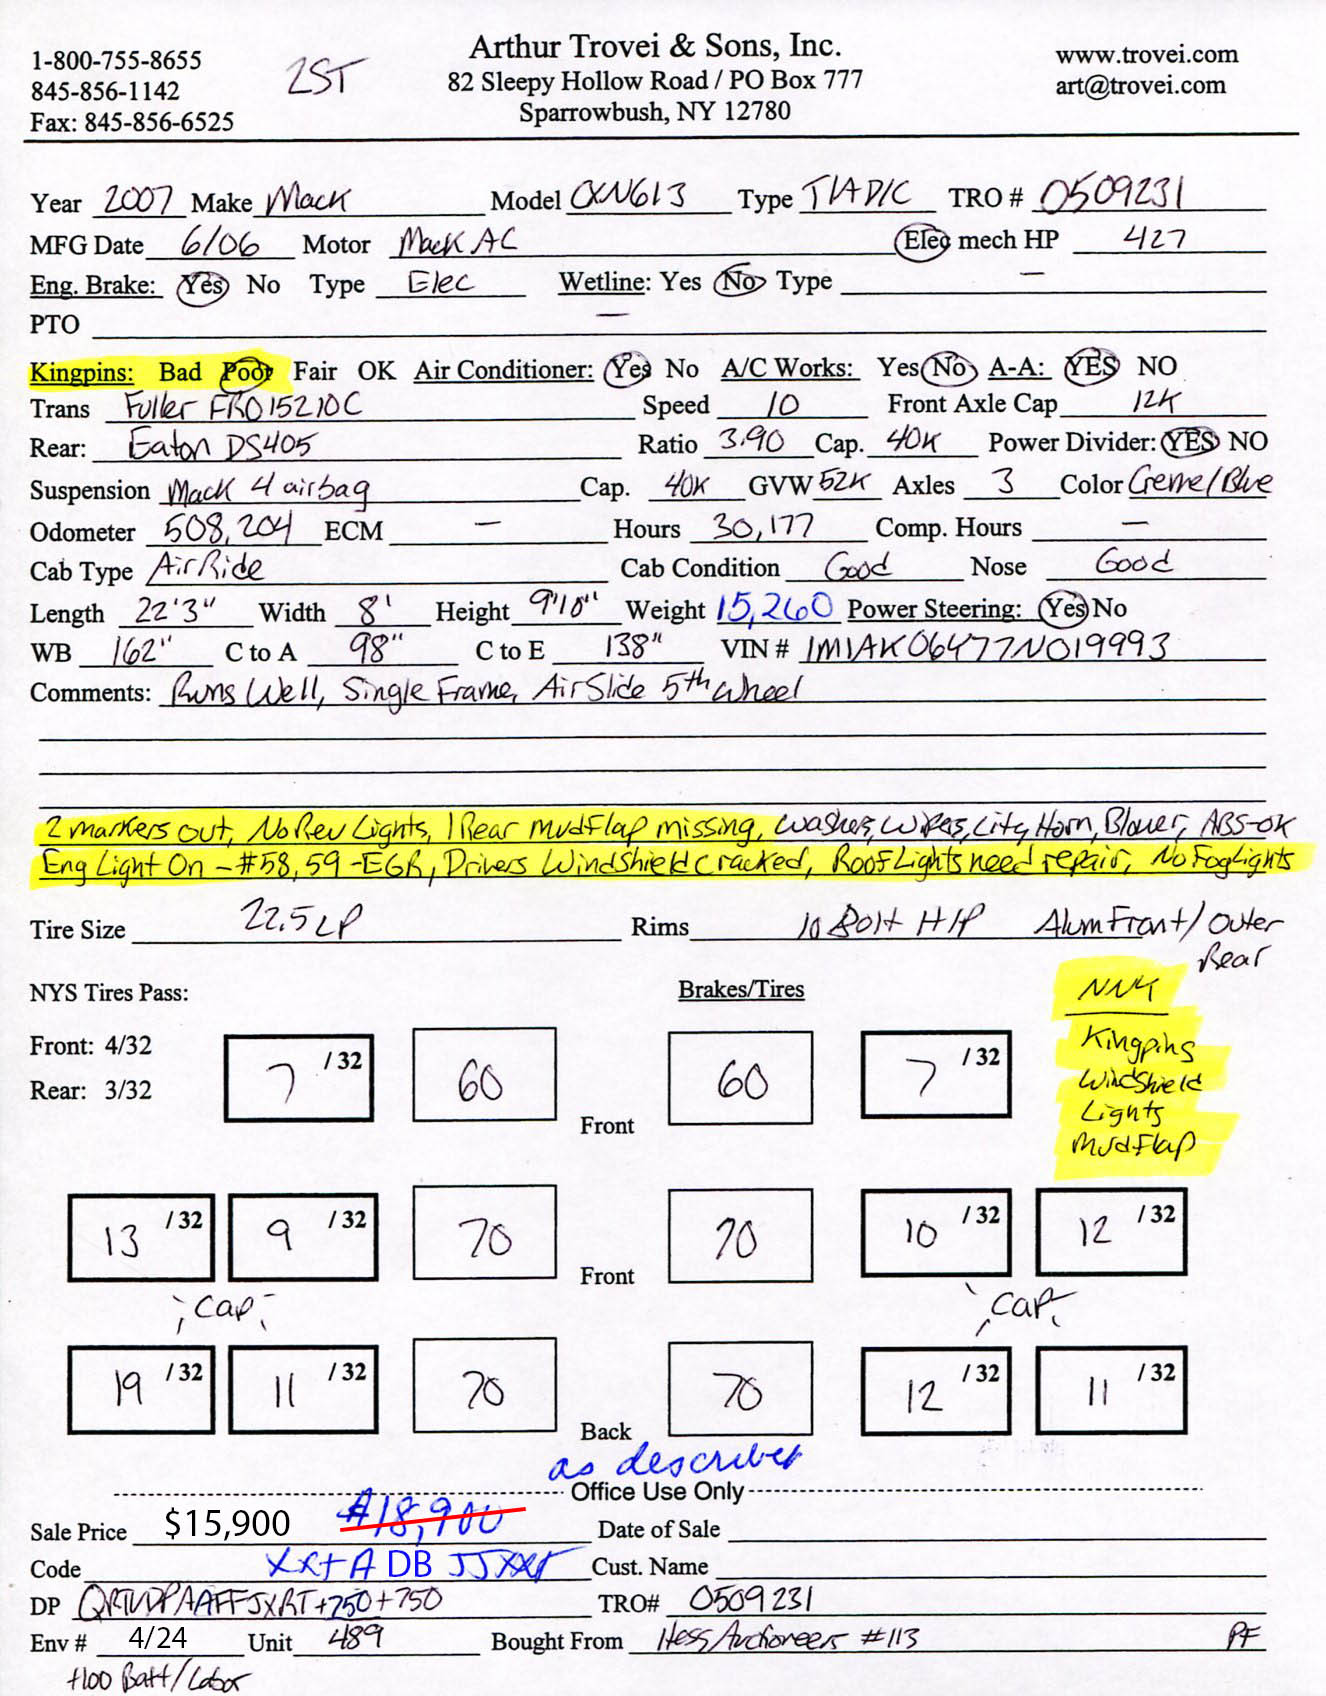 1-800-755-8655
845-856-1142
Fax: 845-856-6525
2ST
Arthur Trovei & Sons, Inc.
82 Sleepy Hollow Road / PO Box 777
Sparrowbush, NY 12780
www.trovei.com
art@trovei.com
Year 2007 Make Mack Model CXN613 Type T/A D/C TRO # 0509231
MFG Date 6/06 Motor Mack AC Elec mech HP 427
Eng. Brake: Yes No Type Elec Wetline: Yes No Type —
PTO —
Kingpins: Bad Poor Fair OK Air Conditioner: Yes No A/C Works: Yes No A-A: YES NO
Trans Fuller FRO15210C Speed 10 Front Axle Cap 12K
Rear: Eaton DS405 Ratio 3.90 Cap. 40K Power Divider: YES NO
Suspension Mack 4 airbag Cap. 40K GVW 52K Axles 3 Color Creme/Blue
Odometer 508,204 ECM — Hours 30,177 Comp. Hours —
Cab Type Air Ride Cab Condition Good Nose Good
Length 22'3" Width 8' Height 9'10" Weight 15,260 Power Steering: Yes No
WB 162" C to A 98" C to E 138" VIN # 1M1AK06Y77N019993
Comments: Runs Well, Single Frame, Air Slide 5th Wheel
2 markers out, No Rev Lights, 1 Rear mudflap missing, Washers, Wipers, City Horn, Blower, ABS-OK
Eng Light On - #58, 59 - EGR, Drivers Windshield cracked, Roof Lights need repair, No Fog Lights
Tire Size 22.5 LP Rims 10 Bolt H/P Alum Front/Outer
Rear
NYS Tires Pass:
Brakes/Tires
NNY
Front: 4/32
Rear: 3/32
7 /32 60 Front 60 7 /32
Kingpins
Windshield
Lights
Mudflap
13 /32 9 /32 70 Front 70 10 /32 12 /32
Cap Cap
19 /32 11 /32 70 Back 70 12 /32 11 /32
as described
Office Use Only
Sale Price $15,900 $18,900 Date of Sale
Code XXTA DB JJXXT Cust. Name
DP +250+750 TRO# 0509231
Env # 4/24 Unit 489 Bought From Hess Auctioneers #113 PF
+100 Batt/Labor